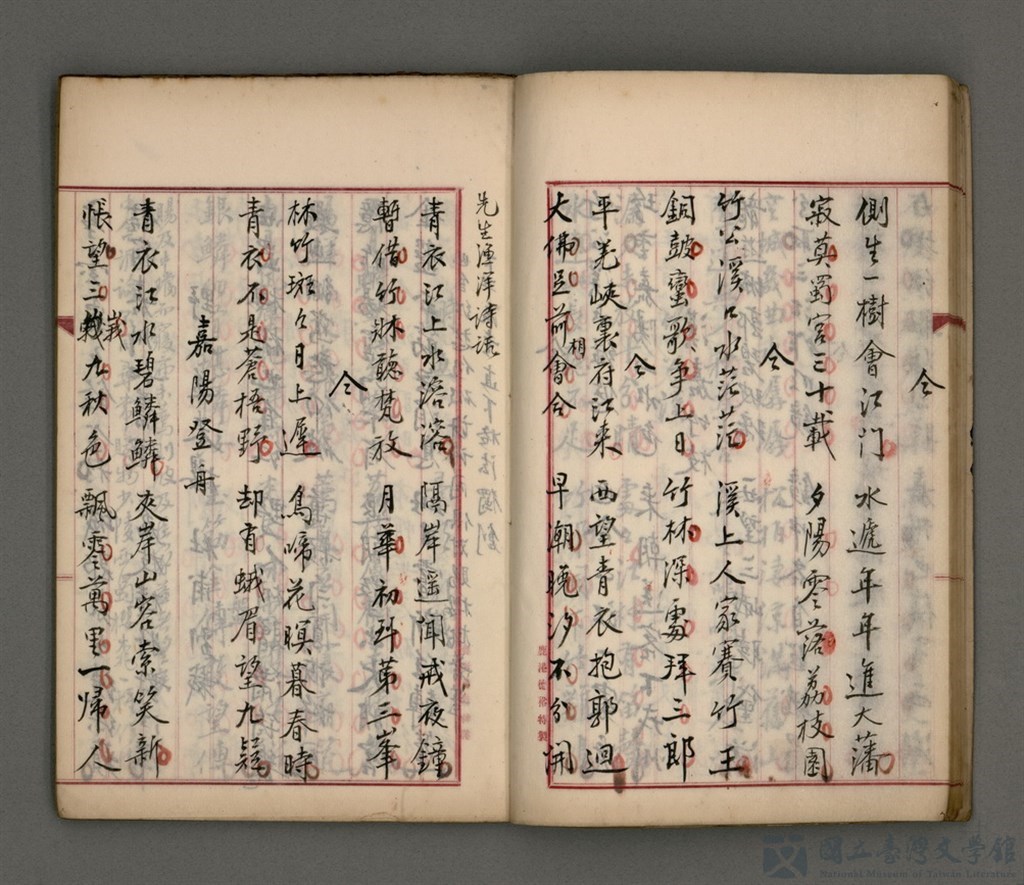 仝
側生一樹會江门　水遞年年進大藩
寂莫蜀宮三十載　夕陽零落荔枝園
仝
竹公溪口水茫茫　溪上人家賽竹王
銅鼓蠻歌爭上日　竹林深處拜三郎
仝
平羌峽裏府江来　西望青衣抱郭迴
大佛足前相會合　早潮晚汐不分開
先生漁洋詩話
青衣江上水溶溶　隔岸遥闻戒夜鐘
暫借竹牀聽梵放　月華初到第三峯
仝
林竹斑々日上遲　鳥啼花暝暮春時
青衣不是蒼梧野　却有蛾眉望九疑
嘉陽登舟
青衣江水碧鱗鱗　夾岸山容索笑新
悵望三載九秋色　飄零萬里一歸人
國立臺灣文學館
National Museum of Taiwan Literature